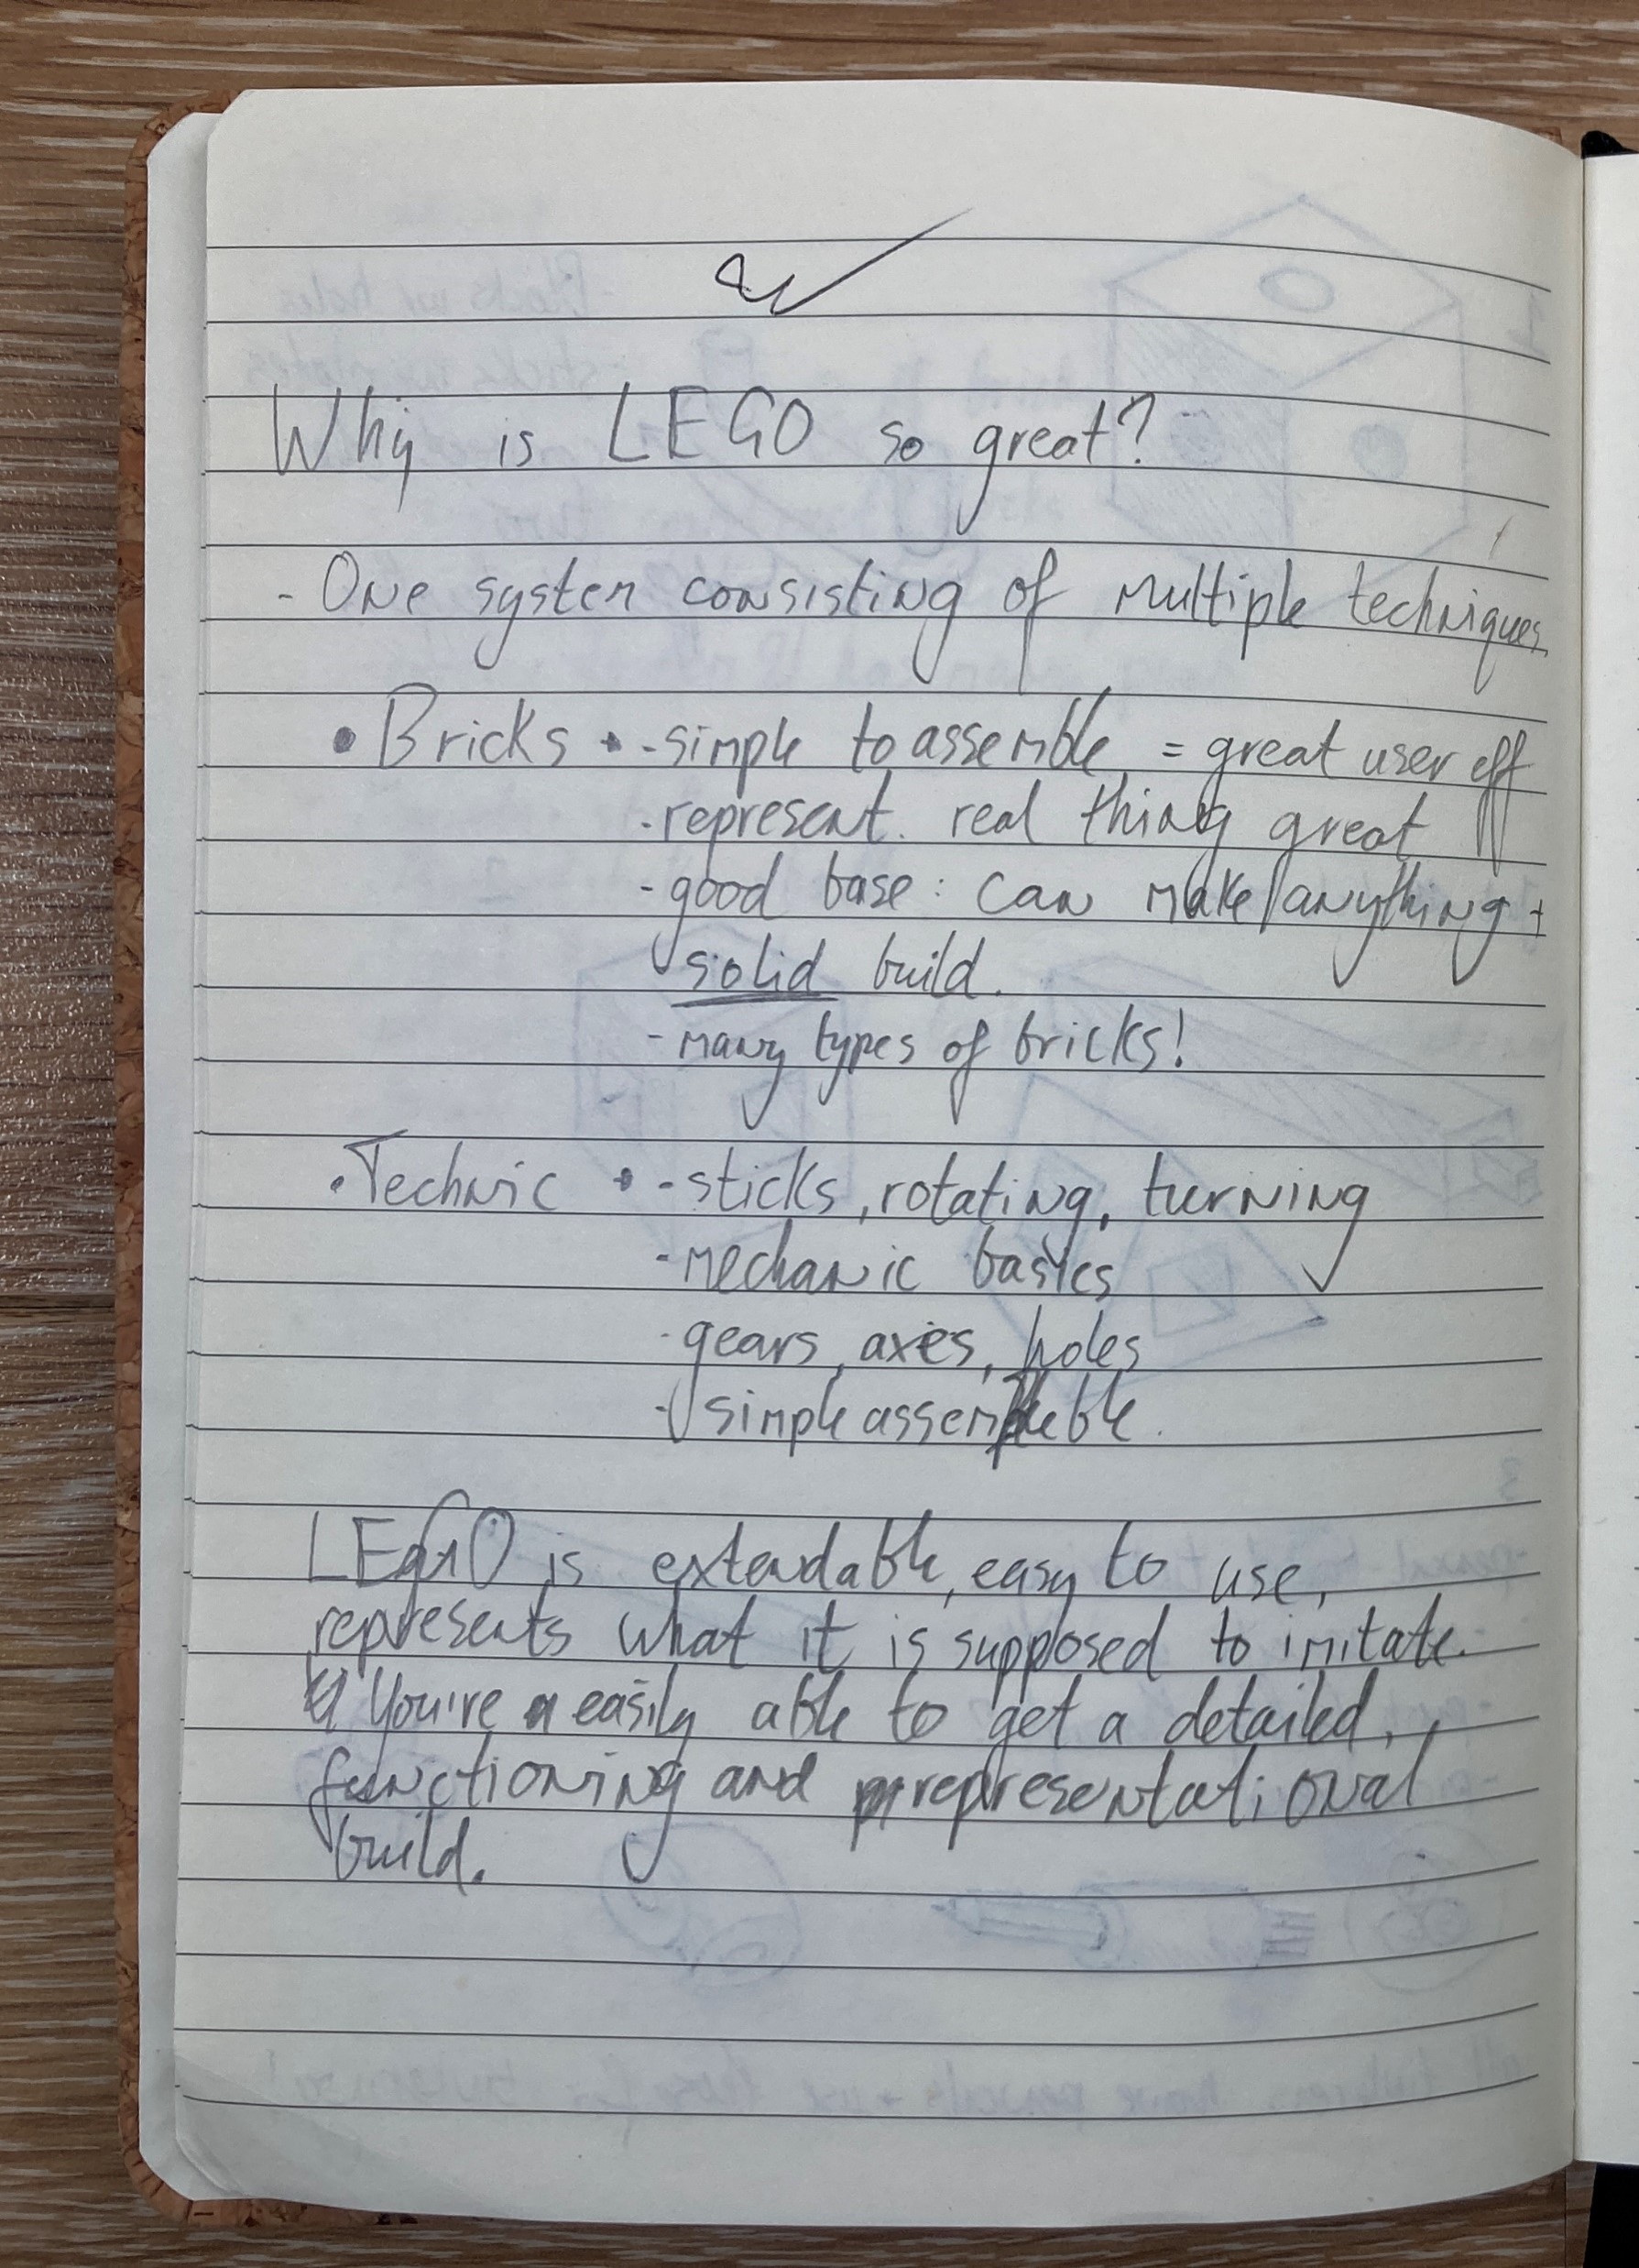 Why is LEGO so great?
- One system consisting of multiple techniques.
• Bricks • - simple to assemble = great user eff
- represent. real thing great
- good base: can make anything +
solid build.
- many types of bricks!
• Technic • - sticks, rotating, turning
- mechanic basics
- gears, axes, holes
- simple assembleble.
LEGO is extendable, easy to use,
represents what it is supposed to imitate.
You're easily able to get a detailed,
functioning and representational
build.